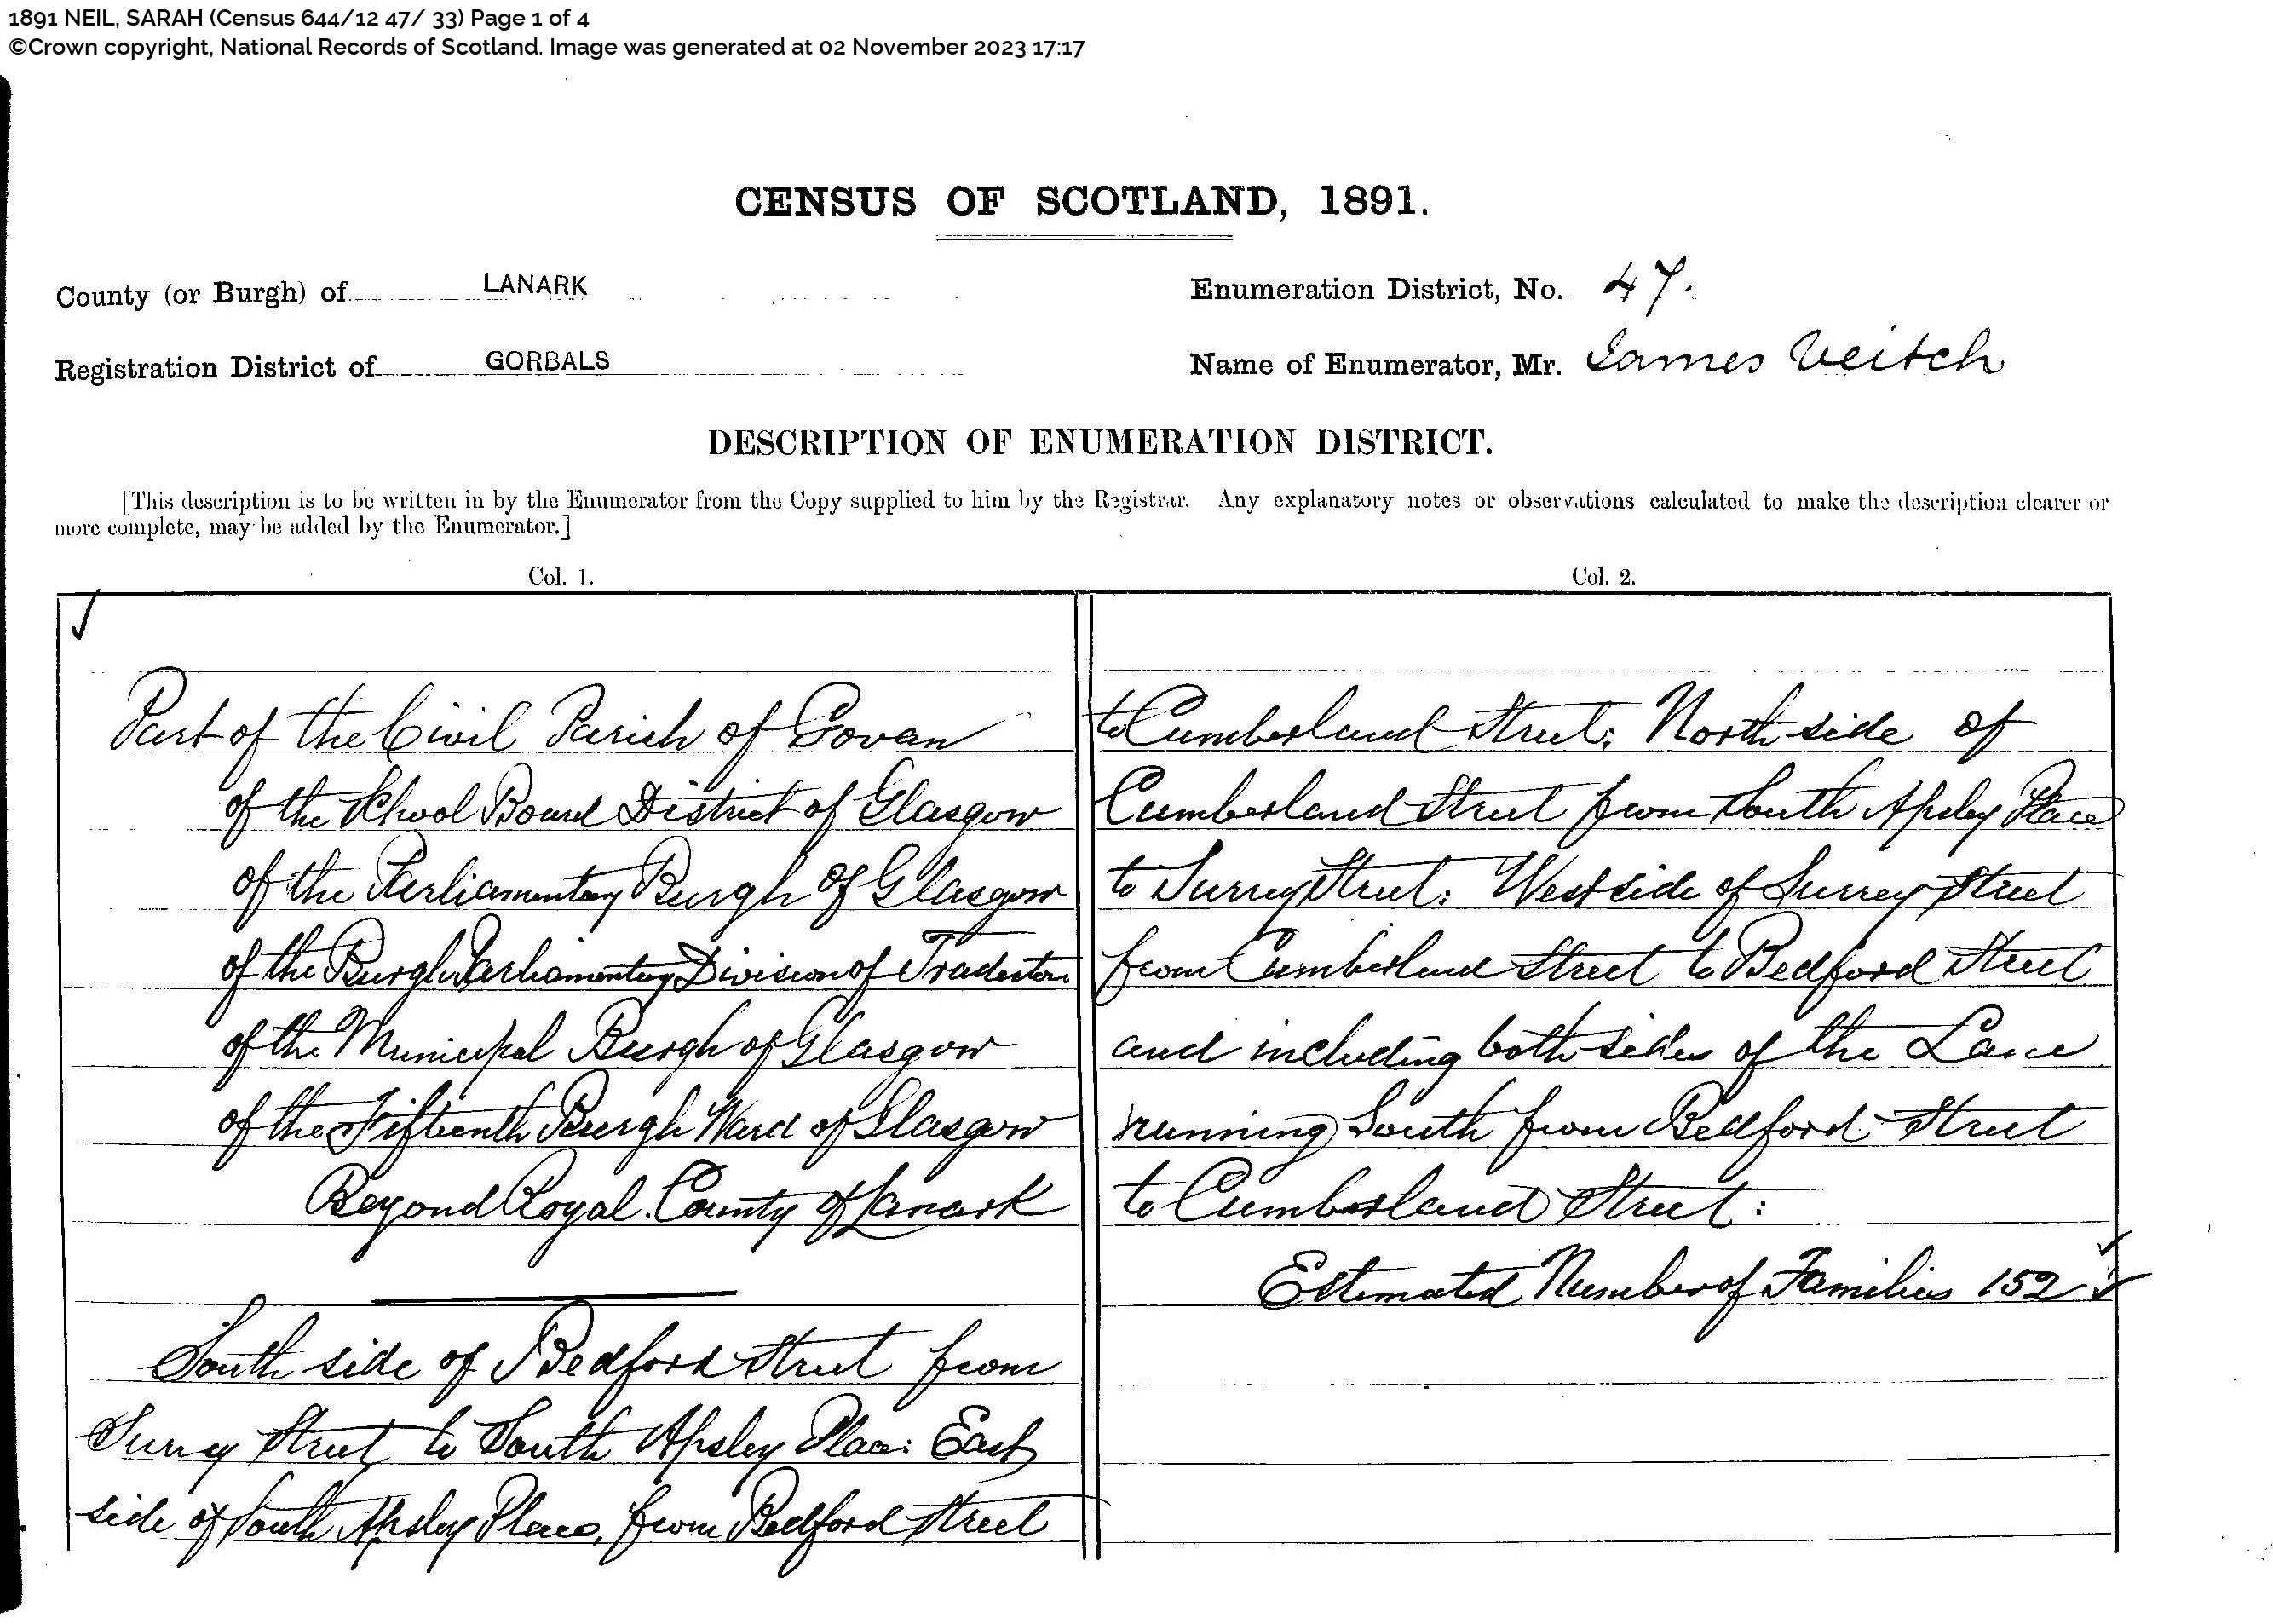 1891 NEIL, SARAH (Census 644/12 47/ 33) Page 1 of 4
©Crown copyright, National Records of Scotland. Image was generated at 02 November 2023 17:17
CENSUS OF SCOTLAND, 1891.
County (or Burgh) of LANARK
Enumeration District, No. 47.
Registration District of GORBALS
Name of Enumerator, Mr. James Veitch
DESCRIPTION OF ENUMERATION DISTRICT.
[This description is to be written in by the Enumerator from the Copy supplied to him by the Registrar. Any explanatory notes or observations calculated to make the description clearer or
more complete, may be added by the Enumerator.]
Col. 1.
Part of the Civil Parish of Govan
of the School Board District of Glasgow
of the Parliamentary Burgh of Glasgow
of the Burgh Parliamentary Division of Tradeston
of the Municipal Burgh of Glasgow
of the Fifteenth Burgh Ward of Glasgow
Beyond Royal. County of Lanark
South side of Bedford Street from
Surrey Street to South Apsley Place: East
side of South Apsley Place, from Bedford Street
Col. 2.
to Cumberland Street: North side of
Cumberland Street from South Apsley Place
to Surrey Street: West side of Surrey Street
from Cumberland Street to Bedford Street
and including both sides of the Lane
running South from Bedford Street
to Cumberland Street:
Estimated Number of Families 152